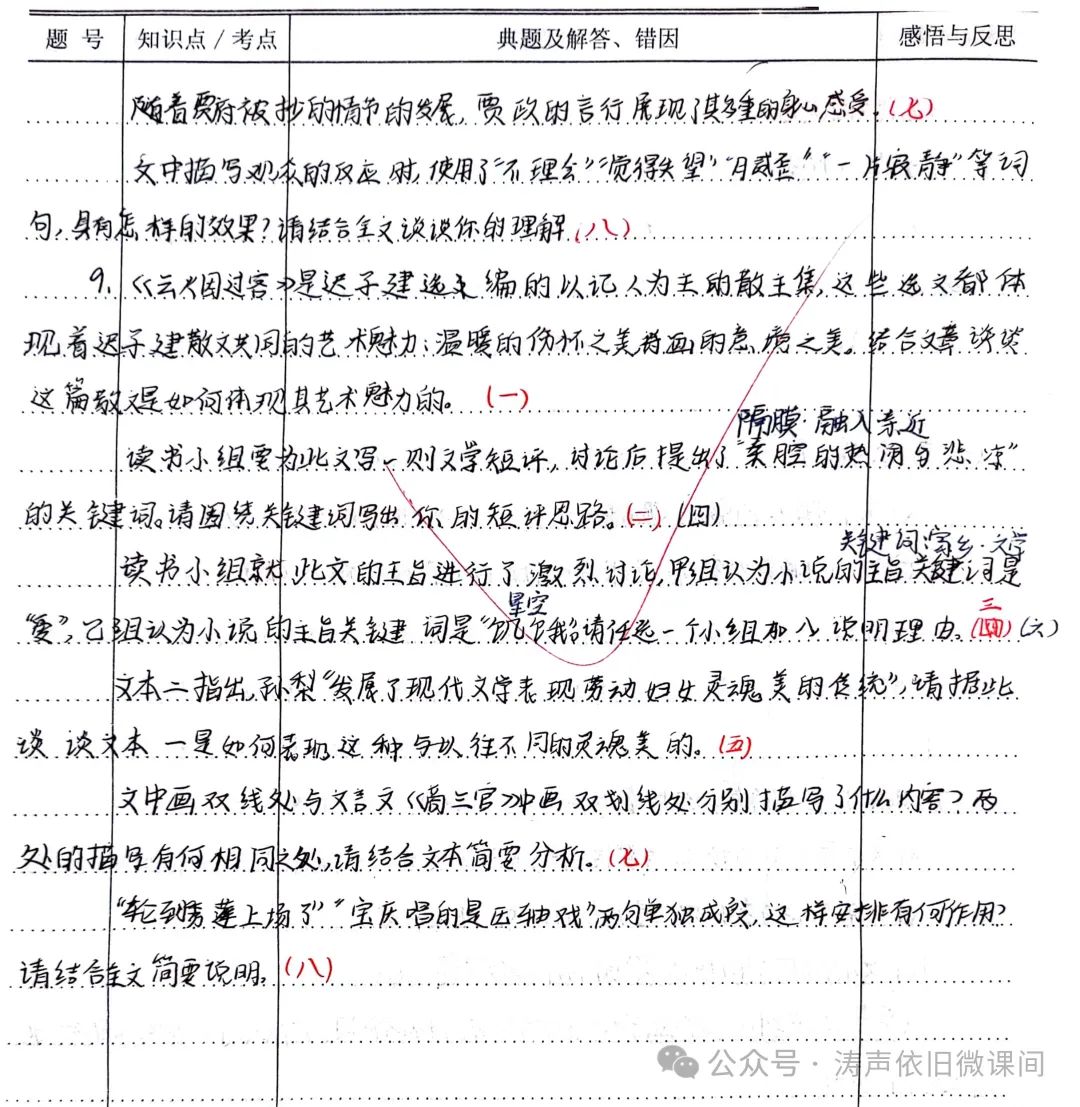 题 号 知识点/考点 典题及解答、错因 感悟与反思
随着贾府被抄的情节的发展,贾政的言行展现了其多重的身心感受。(七)
文中描写观众的反应时,使用了“不理会”“觉得失望”“一片寂静”等词
句,具有怎样的效果?请结合全文谈谈你的理解(八)
9.《云烟过客》是迟子建选编的以记人为主的散文集,这些选文都体
现着迟子建散文共同的艺术魅力:温暖的伤怀之美诗画的意境之美。结合文章谈谈
这篇散文是如何体现其艺术魅力的。(一)
隔膜·融入亲近
读书小组要为此文写一则文学短评,讨论后提出了“秦腔的热闹与悲凉”
的关键词。请围绕关键词写出你的短评思路。(二)(四)
关键词:家乡·文学
读书小组就此文的主旨进行了激烈讨论,甲组认为小说的主旨关键词是
星空 三
“爱”,乙组认为小说的主旨关键词是“饥饿”请任选一个小组加入说明理由。(四)(六)
文本二指出,孙犁“发展了现代文学表现劳动妇女灵魂美的传统”,请据此
谈谈文本一是如何表现这种与以往不同的灵魂美的。(五)
文中画双线处与文言文《高三官》中画双划线处分别描写了什么内容?两
处的描写有何相同之处,请结合文本简要分析。(七)
“轮到秀莲上场了”“宝庆唱的是压轴戏”两句单独成段,这样安排有何作用?
请结合全文简要说明。(八)
公众号·涛声依旧微课间